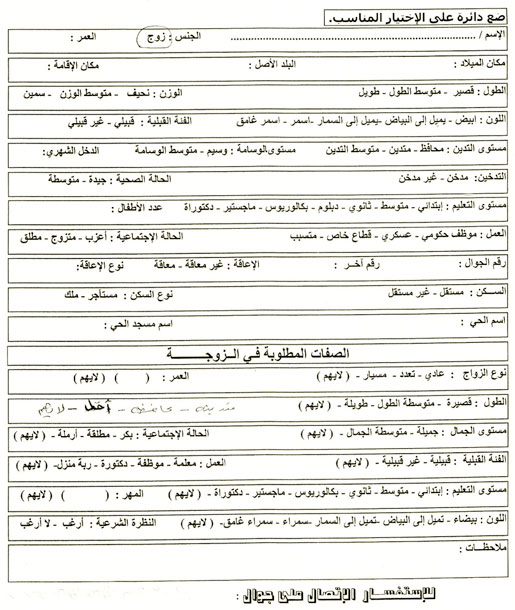 ضع دائرة على الإختيار المناسب.
الإسم / ........................ الجنس : زوج العمر :
مكان الميلاد : البلد الأصل : مكان الإقامة :
الطول : قصير - متوسط الطول - طويل الوزن : نحيف - متوسط الوزن - سمين
اللون : ابيض - يميل إلى البياض -يميل إلى السمار -اسمر - اسمر غامق الفئة القبلية : قبيلي - غير قبيلي
مستوى التدين : محافظ - متدين - متوسط التدين مستوى الوسامة : وسيم - متوسط الوسامة الدخل الشهري:
التدخين: مدخن - غير مدخن الحالة الصحية : جيدة - متوسطة
مستوى التعليم : إبتدائي - متوسط - ثانوي - دبلوم - بكالوريوس - ماجستير - دكتوراة عدد الأطفال :
العمل : موظف حكومي - عسكري - قطاع خاص - متسبب الحالة الإجتماعية : أعزب - متزوج - مطلق
رقم الجوال : رقم آخر : الإعاقة : غير معاقة - معاقة نوع الإعاقة:
السكن : مستقل - غير مستقل نوع السكن : مستأجر - ملك
اسم الحي : اسم مسجد الحي :
الصفات المطلوبة في الزوجة
نوع الزواج : عادي - تعدد - مسيار - ( لايهم ) العمر : ( ) ( لايهم )
الطول : قصيرة - متوسطة الطول - طويلة - ( لايهم ) متدينة - محافظة - - لايهم
مستوى الجمال : جميلة - متوسطة الجمال - ( لايهم ) الحالة الإجتماعية : بكر - مطلقة - أرملة - ( لايهم )
الفئة القبلية : قبيلية - غير قبيلية - ( لايهم ) العمل : معلمة - موظفة - دكتورة - ربة منزل- ( لايهم )
مستوى التعليم : إبتدائي - متوسط - ثانوي - بكالوريوس - ماجستير - دكتوراة - ( لايهم ) المهر : ( ) ( لايهم )
اللون : بيضاء - تميل إلى البياض -تميل إلى السمار -سمراء - سمراء غامق- ( لايهم ) النظرة الشرعية : أرغب - لا أرغب
ملاحظات :
للإستفسار الإتصال على جوال :